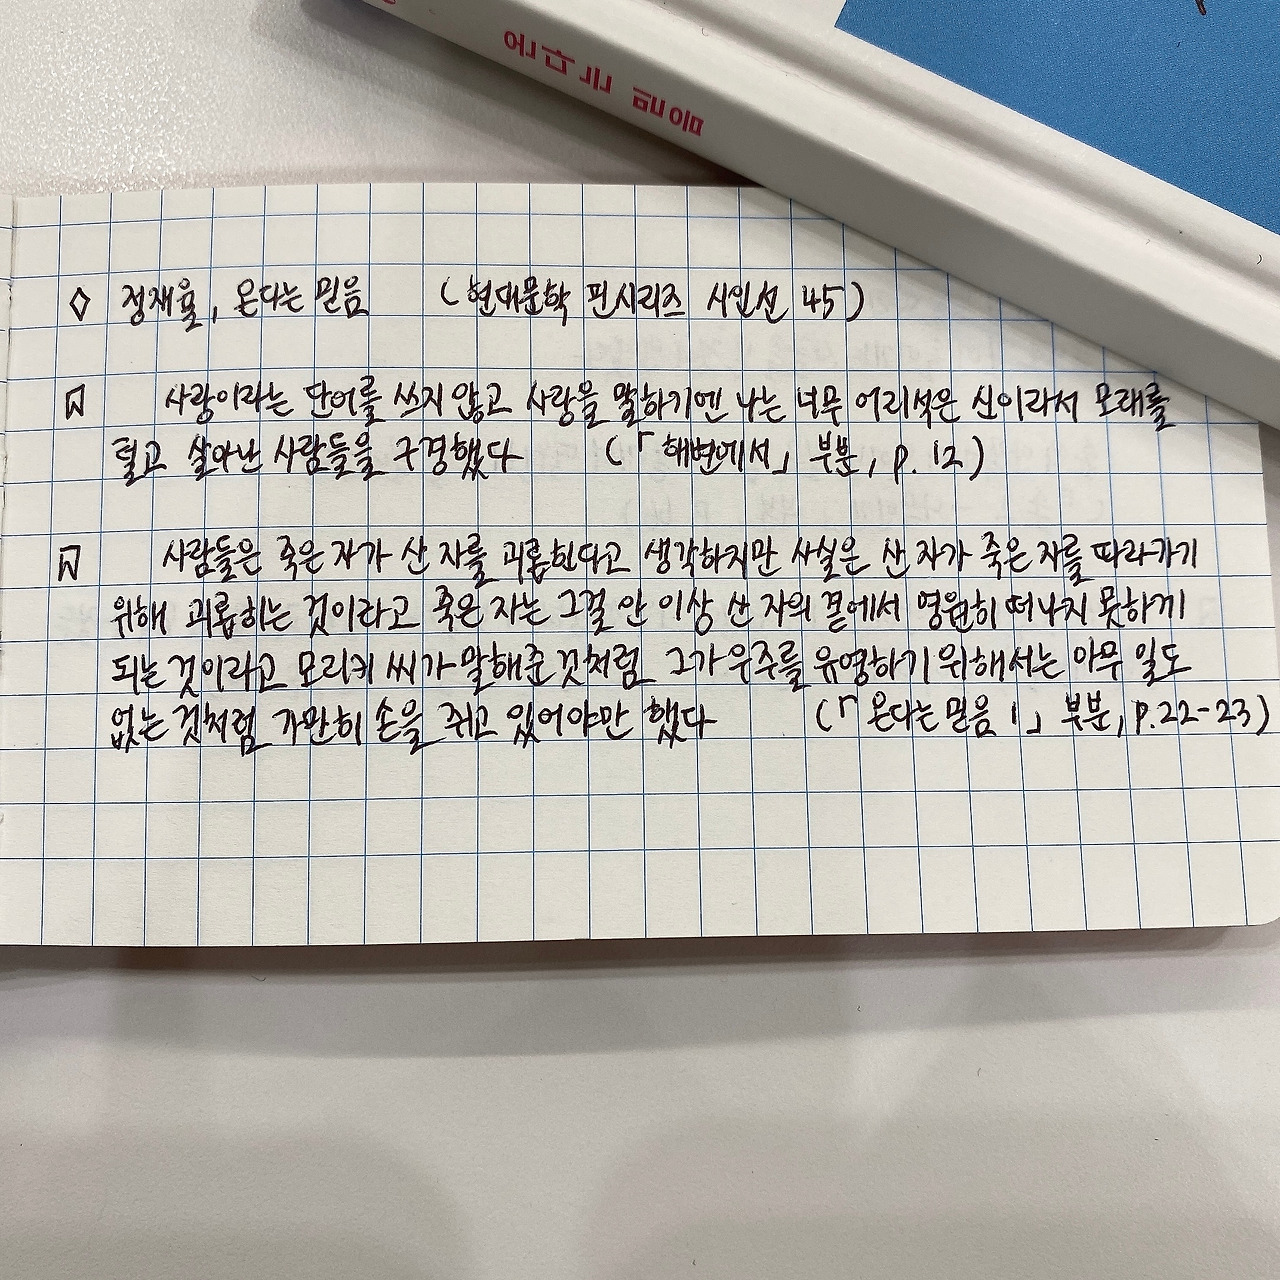 온다는 믿음
◇ 정재율, 온다는 믿음 (현대문학 핀시리즈 시인선 45)
사랑이라는 단어를 쓰지 않고 사랑을 말하기엔 나는 너무 어리석은 신이라서 모래를
털고 살아난 사람들을 구경했다 (「해변에서」 부분, p. 12)
사람들은 죽은 자가 산 자를 괴롭힌다고 생각하지만 사실은 산 자가 죽은 자를 따라가기
위해 괴롭히는 것이라고 죽은 자는 그걸 안 이상 산 자의 곁에서 영원히 떠나지 못하게
되는 것이라고 모리키 씨가 말해준 것처럼 그가 우주를 유영하기 위해서는 아무 일도
없는 것처럼 가만히 손을 쥐고 있어야만 했다 (「온다는 믿음 1」 부분, p.22-23)